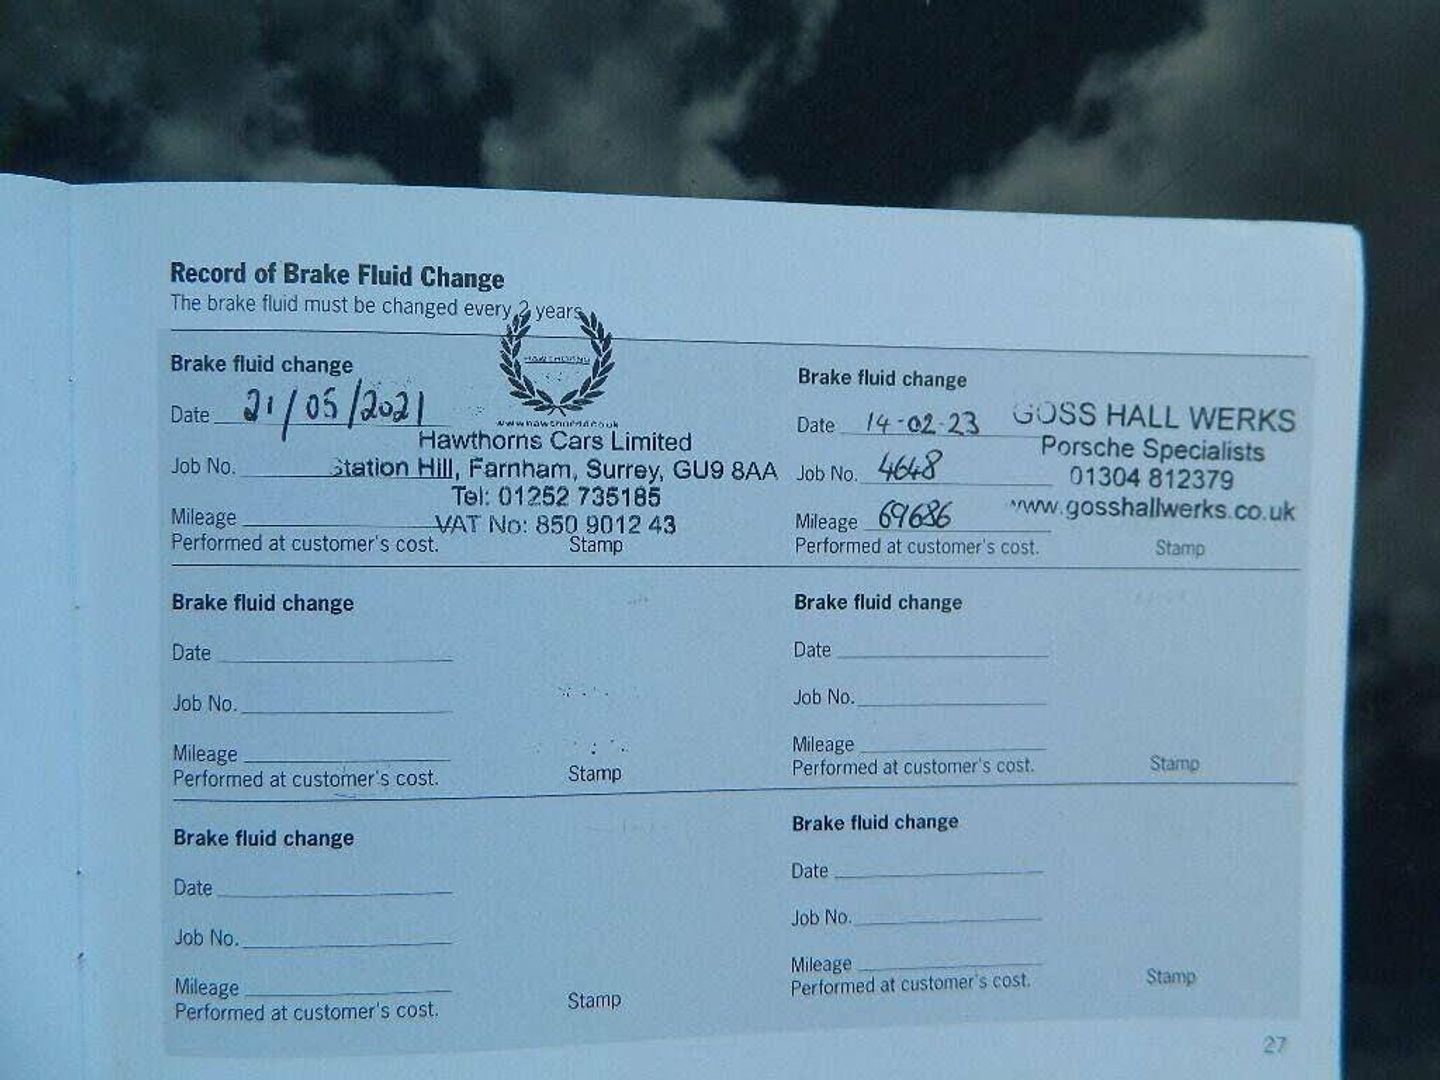 Record of Brake Fluid Change
The brake fluid must be changed every 2 years
Brake fluid change
Date 21/05/2021
Job No.
Mileage
Performed at customer's cost.
Stamp
HAWTHORNS
www.hawthorns.co.uk
Hawthorns Cars Limited
Station Hill, Farnham, Surrey, GU9 8AA
Tel: 01252 735185
VAT No: 850 9012 43
Brake fluid change
Date 14-02-23
Job No. 4648
Mileage 69686
Performed at customer's cost.
Stamp
GOSS HALL WERKS
Porsche Specialists
01304 812379
www.gosshallwerks.co.uk
Brake fluid change
Date
Job No.
Mileage
Performed at customer's cost.
Stamp
Brake fluid change
Date
Job No.
Mileage
Performed at customer's cost.
Stamp
Brake fluid change
Date
Job No.
Mileage
Performed at customer's cost.
Stamp
Brake fluid change
Date
Job No.
Mileage
Performed at customer's cost.
Stamp
27